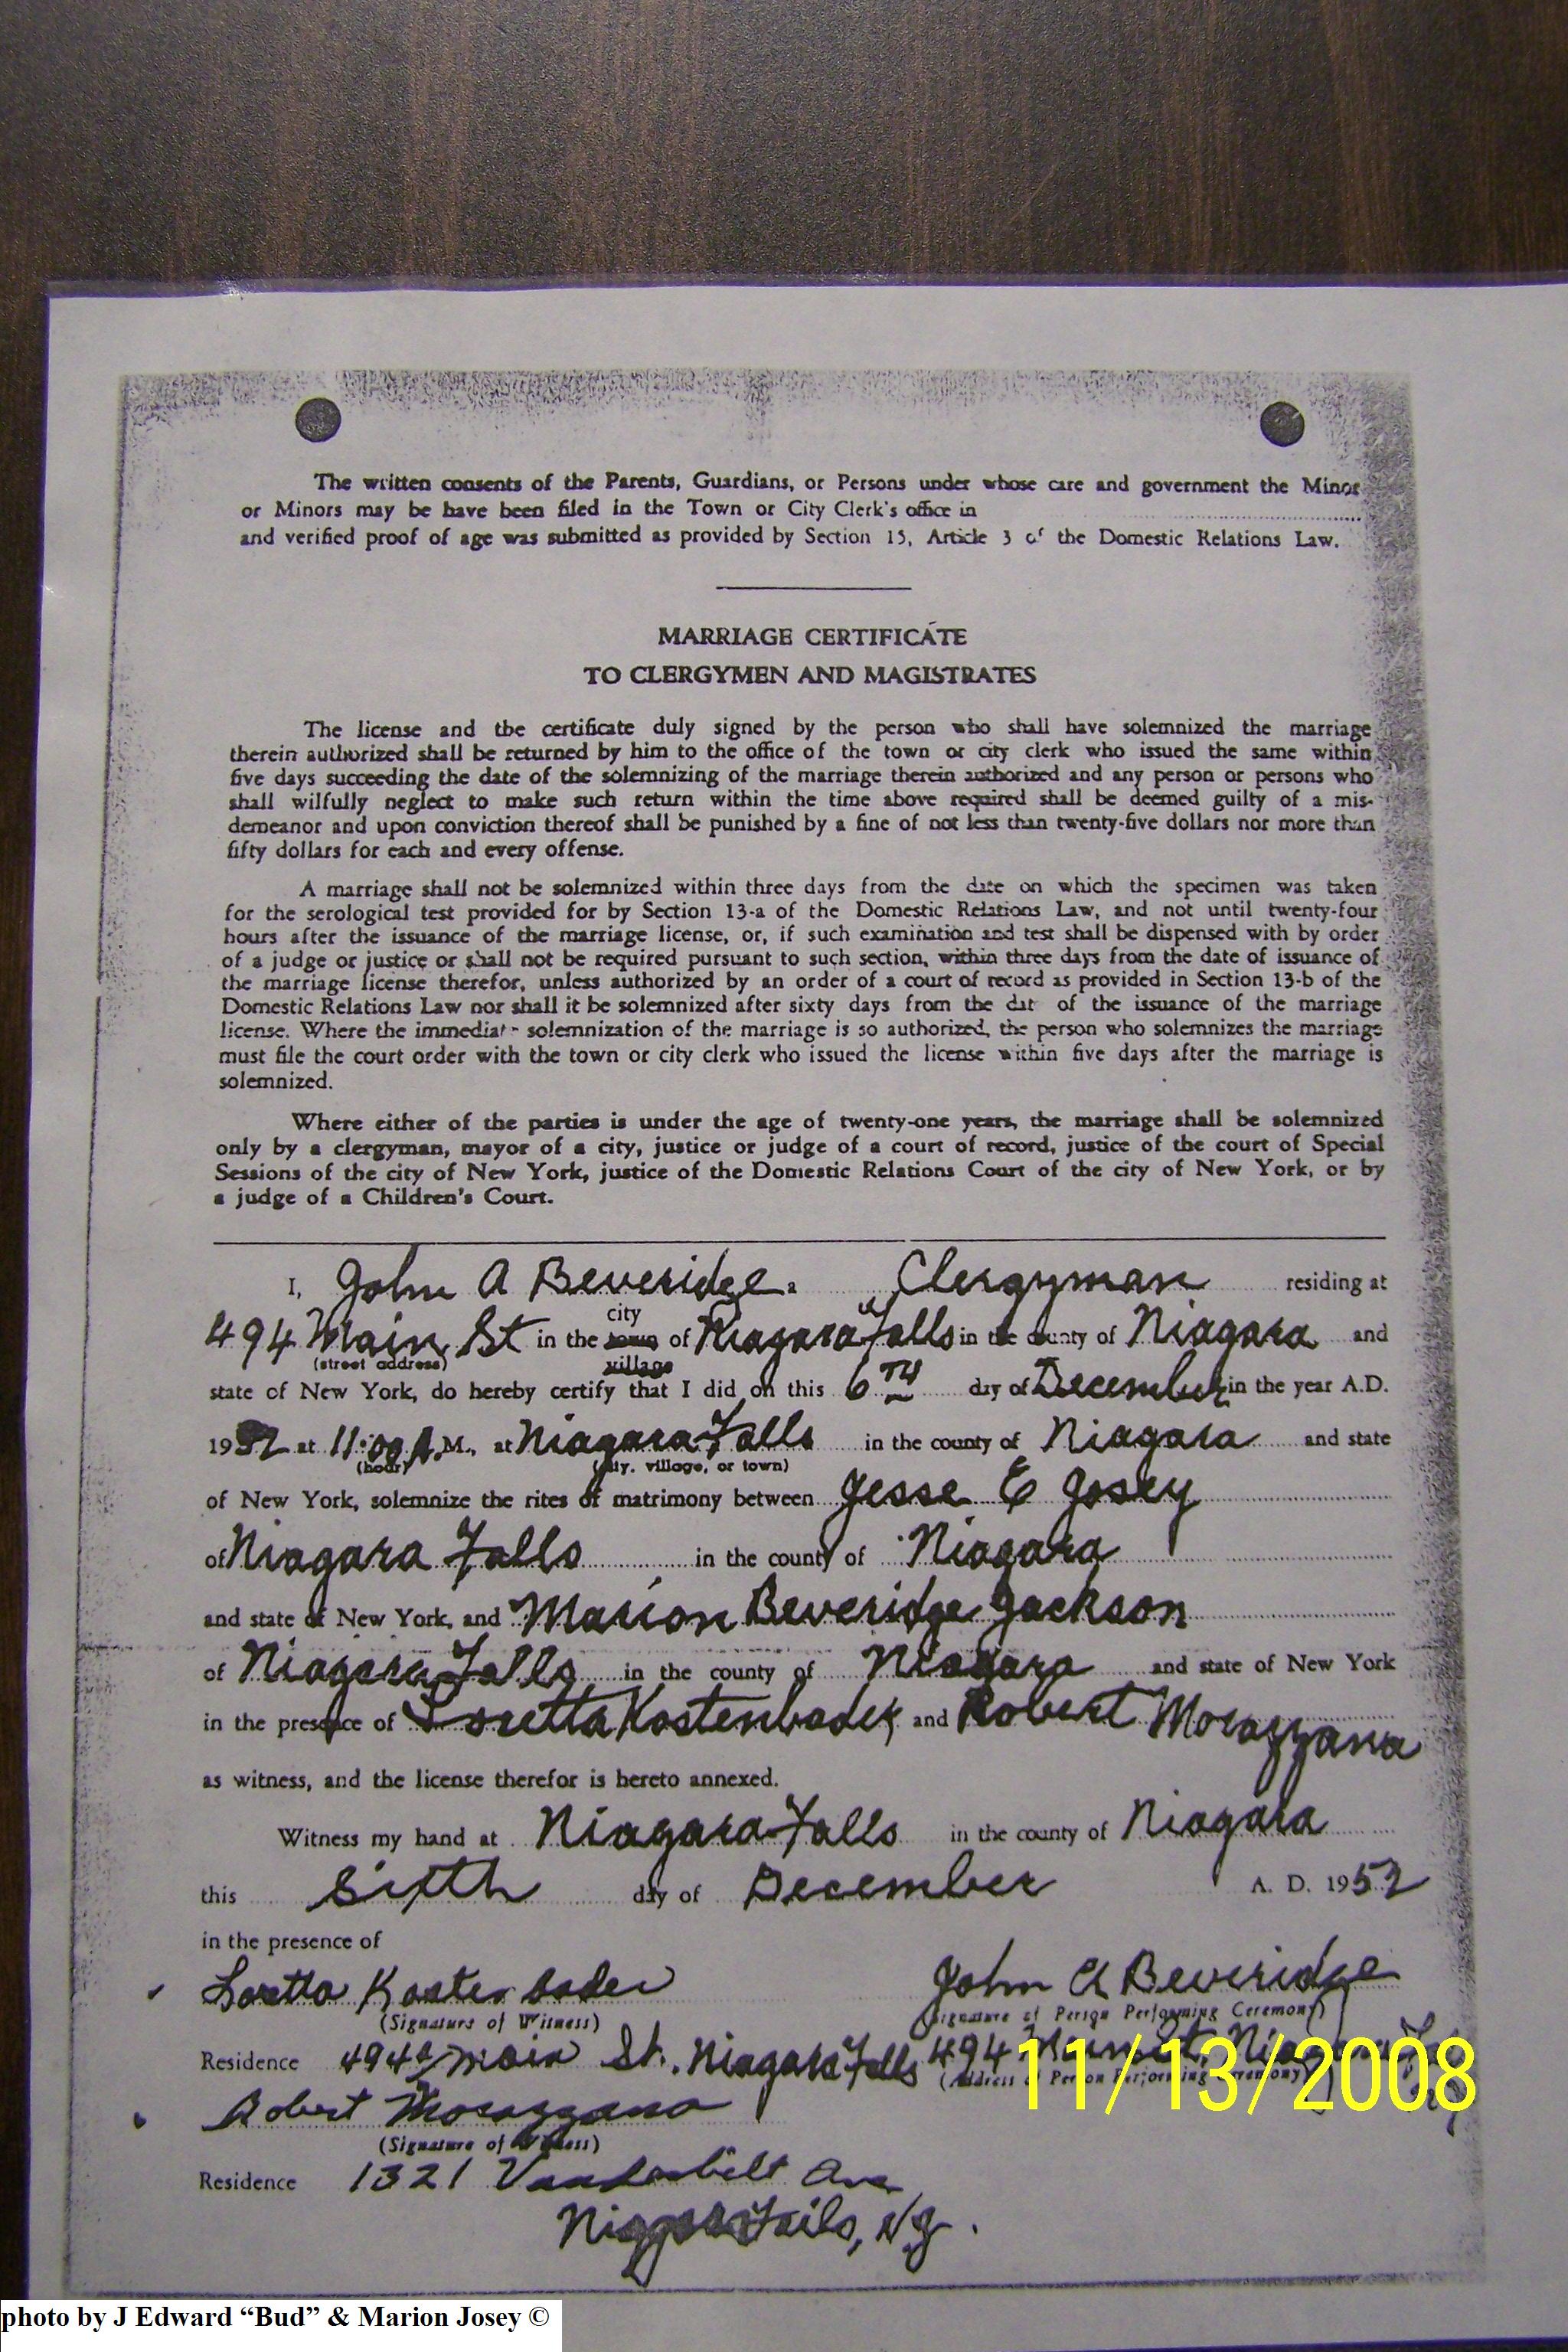 The written consents of the Parents, Guardians, or Persons under whose care and government the Minor
or Minors may be have been filed in the Town or City Clerk's office in
and verified proof of age was submitted as provided by Section 15, Article 3 of the Domestic Relations Law.
MARRIAGE CERTIFICATE
TO CLERGYMEN AND MAGISTRATES
The license and the certificate duly signed by the person who shall have solemnized the marriage
therein authorized shall be returned by him to the office of the town or city clerk who issued the same within
five days succeeding the date of the solemnizing of the marriage therein authorized and any person or persons who
shall wilfully neglect to make such return within the time above required shall be deemed guilty of a mis-
demeanor and upon conviction thereof shall be punished by a fine of not less than twenty-five dollars nor more than
fifty dollars for each and every offense.
A marriage shall not be solemnized within three days from the date on which the specimen was taken
for the serological test provided for by Section 13-a of the Domestic Relations Law, and not until twenty-four
hours after the issuance of the marriage license, or, if such examination and test shall be dispensed with by order
of a judge or justice or shall not be required pursuant to such section, within three days from the date of issuance of
the marriage license therefor, unless authorized by an order of a court of record as provided in Section 13-b of the
Domestic Relations Law nor shall it be solemnized after sixty days from the dat of the issuance of the marriage
license. Where the immediate solemnization of the marriage is so authorized, the person who solemnizes the marriage
must file the court order with the town or city clerk who issued the license within five days after the marriage is
solemnized.
Where either of the parties is under the age of twenty-one years, the marriage shall be solemnized
only by a clergyman, mayor of a city, justice or judge of a court of record, justice of the court of Special
Sessions of the city of New York, justice of the Domestic Relations Court of the city of New York, or by
a judge of a Children's Court.
I, John A Beveridge a Clergyman residing at
city
494 Main St in the town of Niagara Falls in the county of Niagara and
(street address) village
state of New York, do hereby certify that I did on this 6TH day of December in the year A.D.
1952 at 11:00 A.M., at Niagara Falls in the county of Niagara and state
(hour) (city, village, or town)
of New York, solemnize the rites of matrimony between Jesse E Josey
of Niagara Falls in the county of Niagara
and state of New York, and Marion Beveridge Jackson
of Niagara Falls in the county of Niagara and state of New York
in the presence of Loretta Kostenbader and Robert Morazzana
as witness, and the license therefor is hereto annexed.
Witness my hand at Niagara Falls in the county of Niagara
this Sixth day of December A. D. 1952
in the presence of
Loretta Kostenbader John A Beveridge
(Signature of Witness) (Signature of Person Performing Ceremony)
Residence 494 Main St. Niagara Falls 494 Main St, Niagara
(Address of Person Performing Ceremony)
11/13/2008
Robert Morazzana
(Signature of Witness)
Residence 1321 Vanderbilt Ave
Niagara Falls, N.Y.
photo by J Edward “Bud” & Marion Josey ©